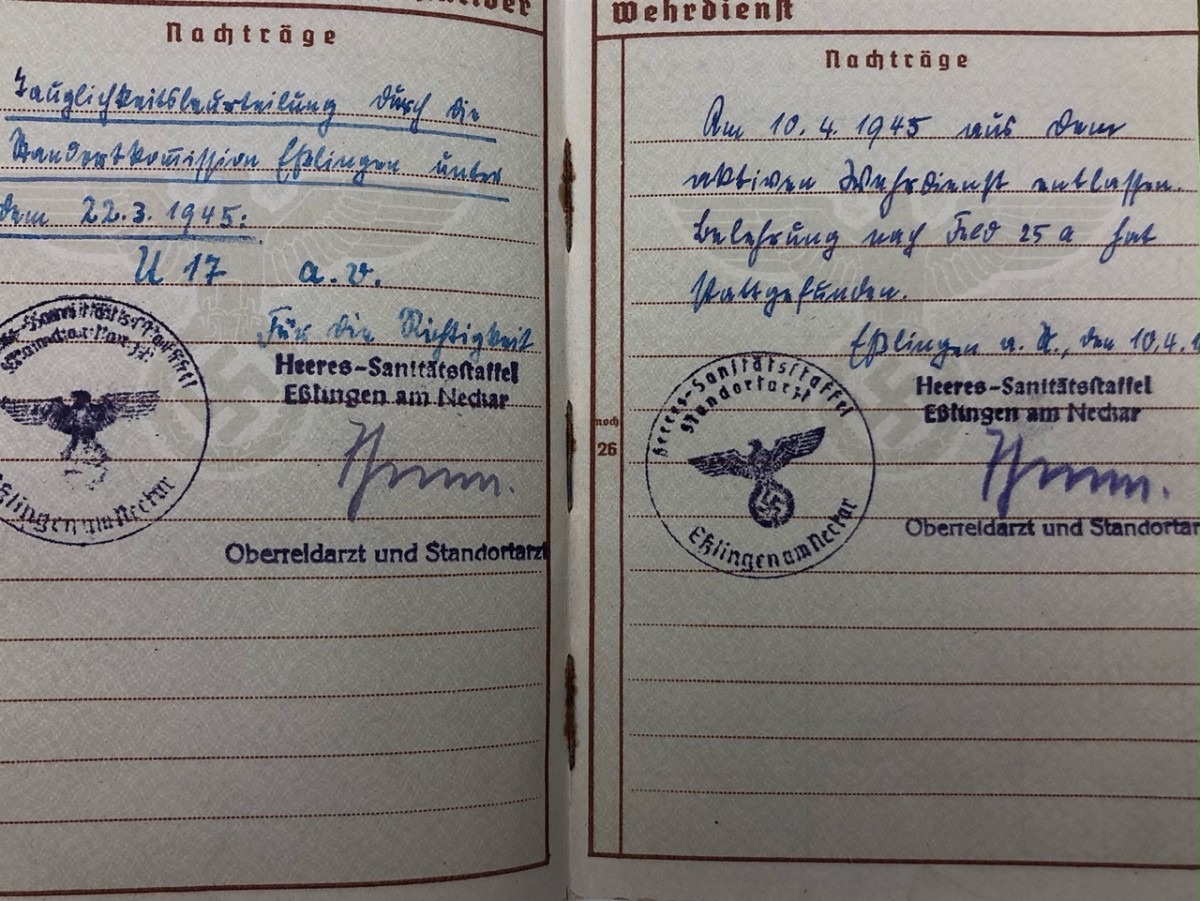 Nachträge
Tauglichkeitsbeurteilung durch die
Standortkommission Eßlingen unter
dem 22.3.1945:
U 17 a.v.
Für die Richtigkeit
Heeres-Sanitätsstaffel
Eßlingen am Neckar
Heeres-Sanitätsstaffel
Standortarzt
Eßlingen am Neckar
Oberfeldarzt und Standortarzt
Wehrdienst
Nachträge
Am 10.4.1945 aus dem
aktiven Wehrdienst entlassen.
Belehrung nach Feld 25 a hat
stattgefunden.
Eßlingen a. N., den 10.4.1
Heeres-Sanitätsstaffel
Eßlingen am Neckar
Heeres-Sanitätsstaffel
Standortarzt
Eßlingen am Neckar
noch
26
Oberfeldarzt und Standortar